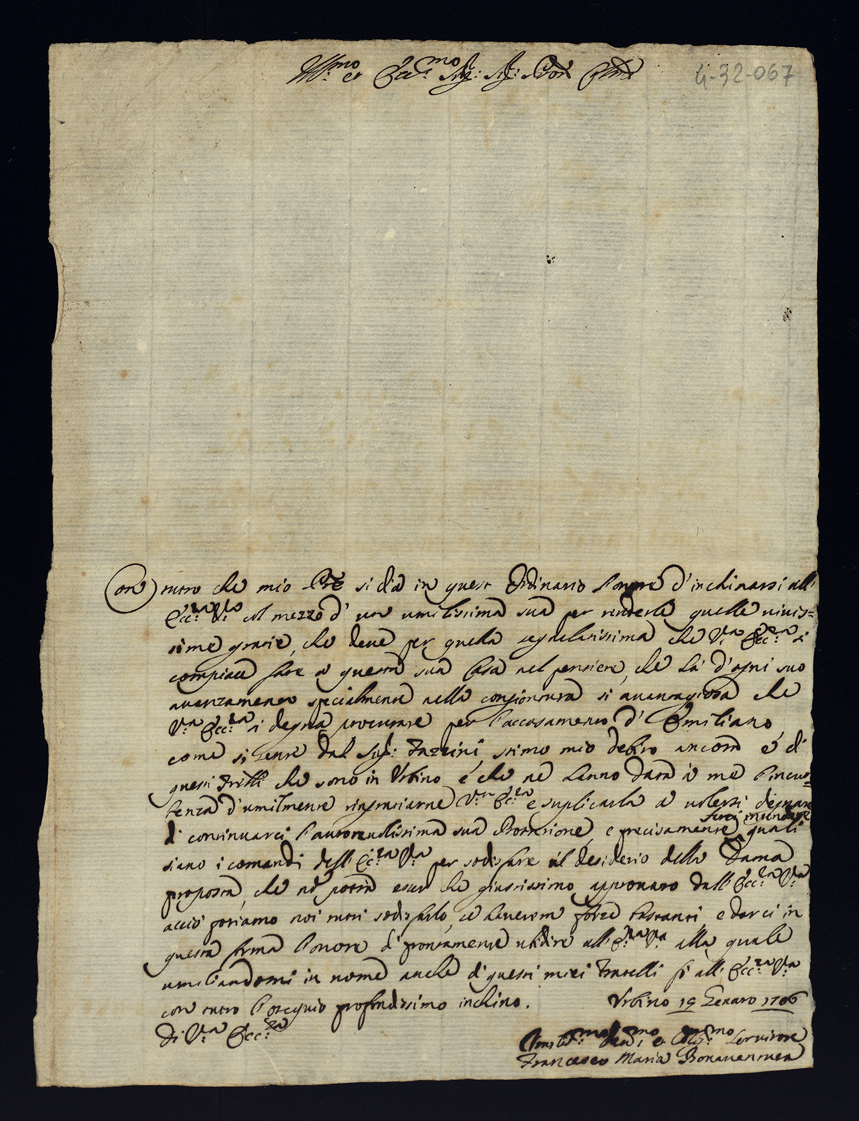 Ill.mo et Ecc.mo Sig: Sig: Pron Colmo
4-32-067
Con tutto che mio Pre si dia in quest Ordinario l'onore d'inchinarsi all
Ecc.za V.ra col mezzo d'una umilissima sua per renderle quelle vivis=
sime grazie, che deve per quella segnalatissima che V.ra Ecc.za si
compiace fare a questa sua Casa nel pensiere, che hà d'ogni suo
avanzamento specialmente nella congiontura sì avantagiosa che
V.ra Ecc.za si degna procurare per l'accasamento d'Emiliano,
come si sente dal Sig: Fazzini stimo mio debito ancora e di
questi Fratelli che sono in Urbino e che ne hanno data à me l'incum=
benza d'umilmente ringraziarne V.ra Ecc.za e suplicarla a volersi degnare
di continuarci l'autorevolissima sua Protezione, e precisamente farci intendere quali
siano i comandi dell Ecc.za V.ra per sodisfare il desiderio della Dama
proposta, che nõ potrà esser che giustissimo approvato dall'Ecc.za V.ra
acciò potiamo noi tutti sodisfarlo, se haveremo forze bastanti e darci in
questa forma l'onore di prontamente ubidire all Ecc.za V.ra alla quale
umiliandomi in nome anche di questi miei Fratelli fò all Ecc.za V.ra
con tutto l'ossequio profondissimo inchino. Urbino 19 Genaro 1706
Di V.ra Ecc.za
Umiliss.mo Dev.mo et Obl.mo Servitore
Francesco Maria Bonaventura